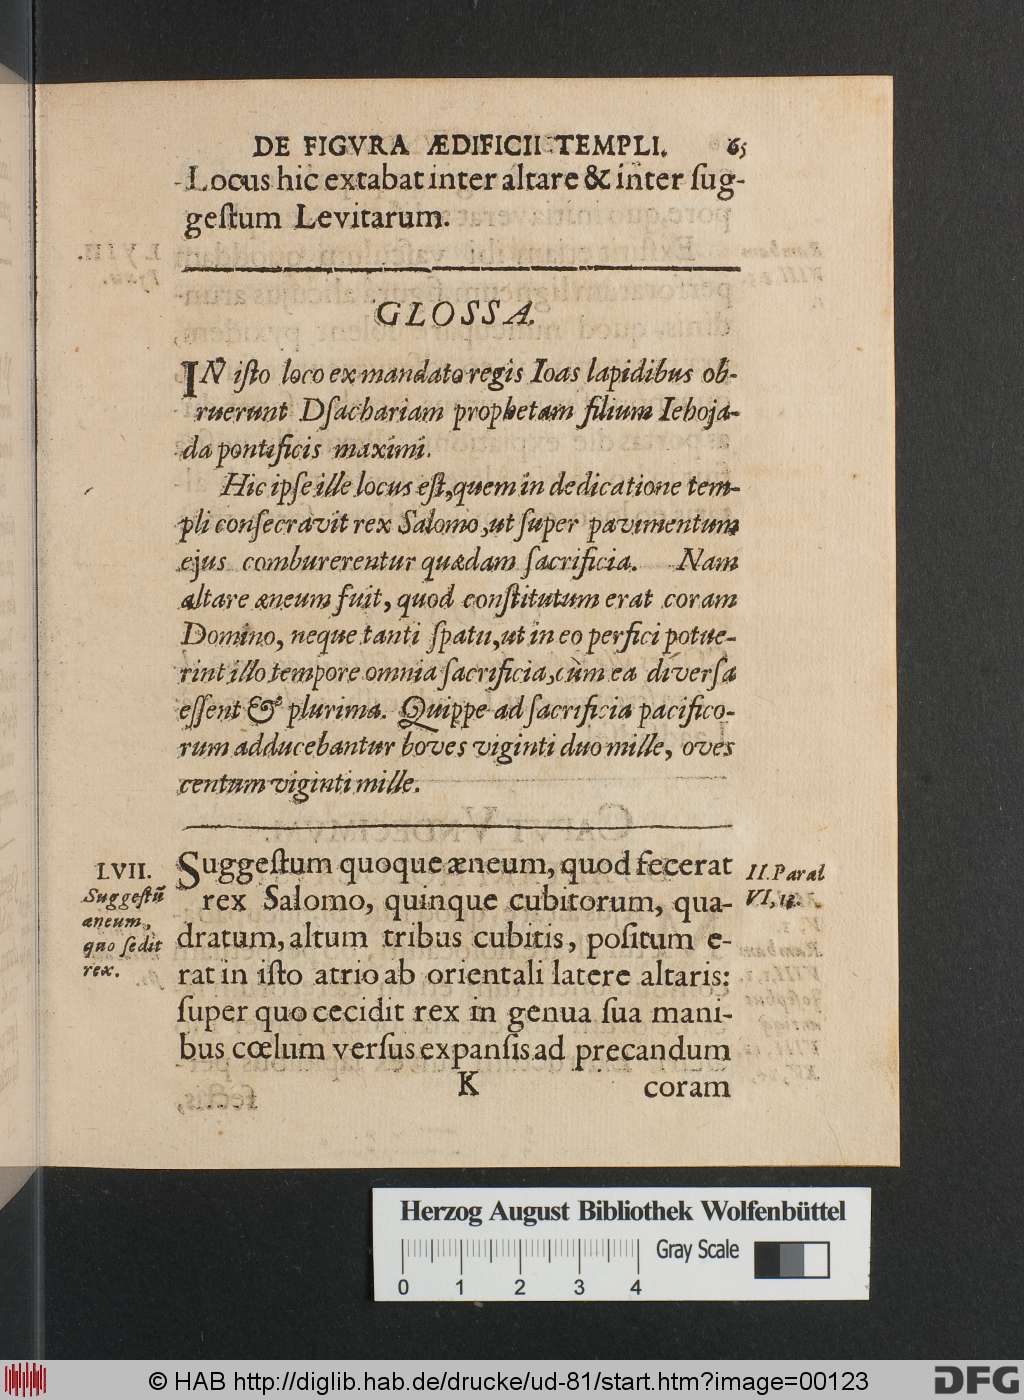 DE FIGVRA ÆDIFICII TEMPLI. 65
Locus hic extabat inter altare & inter ſug-
geſtum Levitarum.
GLOSSA.
IN iſto loco ex mandato regis Ioas lapidibus ob-
ruerunt Dſachariam prophetam filium Iehoja-
da pontificis maximi.
Hic ipſe ille locus eſt, quem in dedicatione tem-
pli conſecravit rex Salomo, ut ſuper pavimentum
ejus comburerentur quædam ſacrificia. Nam
altare æneum fuit, quod conſtitutum erat coram
Domino, neque tanti ſpatii, ut in eo perfici potue-
rint illo tempore omnia ſacrificia, cùm ea diverſa
eſſent & plurima. Quippe ad ſacrificia pacifico-
rum adducebantur boves viginti duo mille, oves
centum viginti mille.
LVII.
Suggeſtũ
æneum,
quo ſedit
rex.
Suggeſtum quoque æneum, quod fecerat
rex Salomo, quinque cubitorum, qua-
dratum, altum tribus cubitis, poſitum e-
rat in iſto atrio ab orientali latere altaris:
ſuper quo cecidit rex in genua ſua mani-
bus cœlum verſus expanſis ad precandum
II. Paral
VI, 13.
K coram
Herzog August Bibliothek Wolfenbüttel
Gray Scale
0 1 2 3 4
© HAB http://diglib.hab.de/drucke/ud-81/start.htm?image=00123
DFG